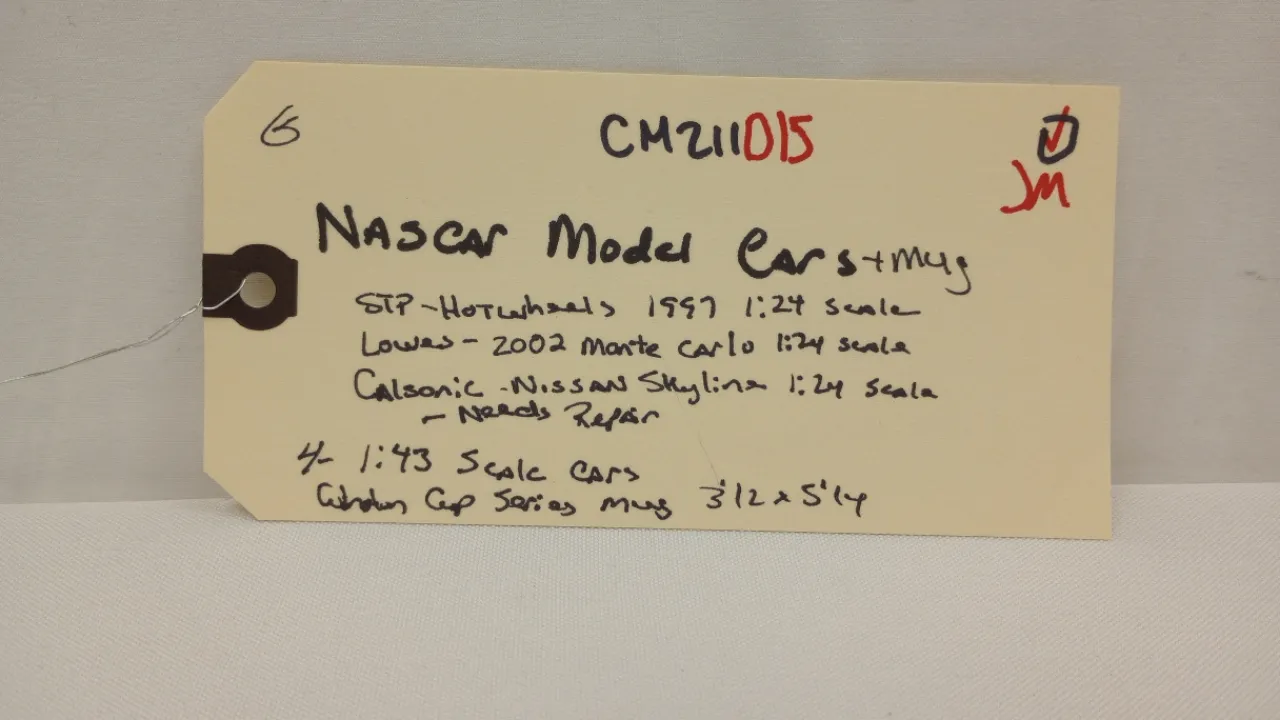 G
CM211D15
JM
NASCAR Model Cars + mug
STP - HOTwheels 1997 1:24 scale
Lowes - 2002 Monte Carlo 1:24 scale
Calsonic - NISSAN Skyline 1:24 scale
- Needs Repair
4- 1:43 Scale CARS
Cup Series mug 3 1/2 x 5 1/4